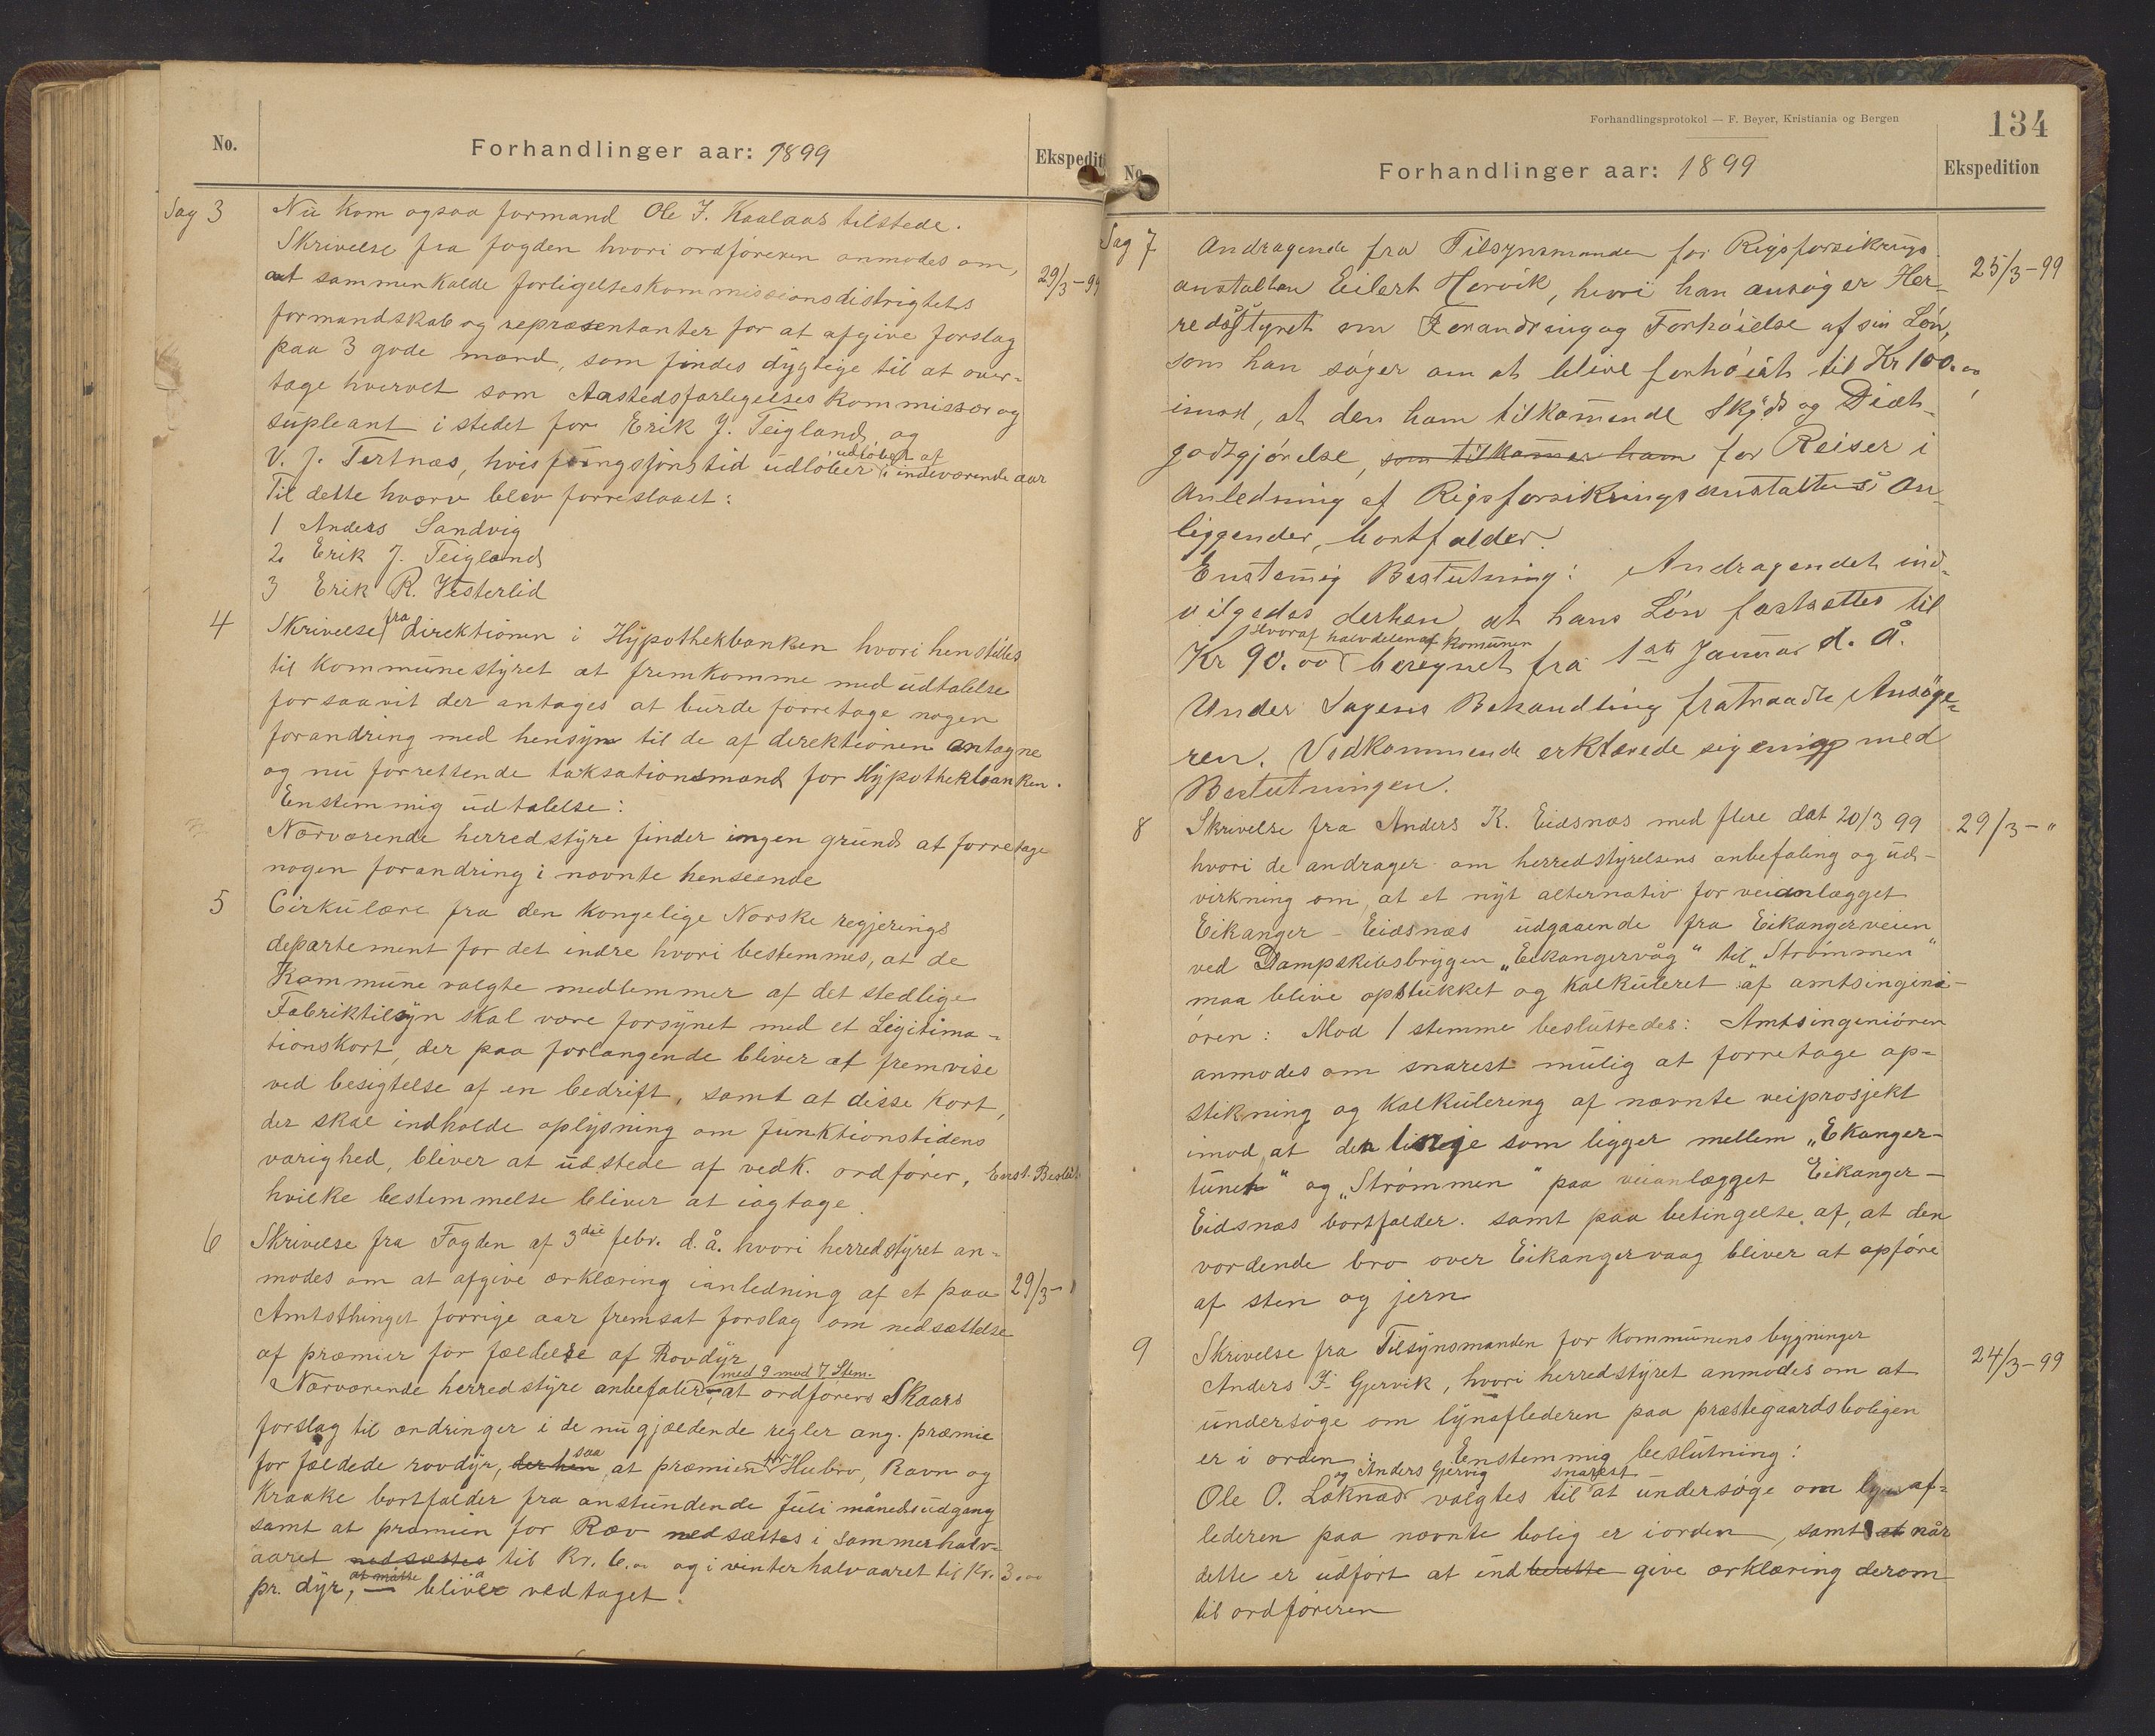 No.
Forhandlinger aar: 1899
Ekspedit
Sag 3
Nu kom ogsaa formand Ole J. Kaalaas tilstede.
Skrivelse fra fogden hvori ordføreren anmodes om,
29/3-99
at sammenkalde forligelteskommissionsdistrigtets
formandskab og repræsentanter for at afgive forslag
paa 3 gode mænd, som findes dygtige til at over-
tage hvervet som Aastedsforligelseskommissær og
supleant i stedet for Erik J. Teigland og
V. J. Tertnæs, hvis fungsjonstid udløber i udløbet af indeværende aar
Til dette hværv blev forreslaaet:
1 Anders Sandvig
2 Erik J. Teigland
3 Erik R. Vesterlid
4
Skrivelse fra Direktionen i Hypothekbanken hvori henstilles
til kommunestyret at fremkomme med udtalelse
forsaavit der antages at burde forretage nogen
forandring med hensyn til de af direktionen antagne
og nu forrettende taksationsmænd for Hypothekbanken.
Enstemmig udtalelse:
Nærværende herredstyre finder ingen grund at forretage
nogen forandring i nævnte henseende
5
Cirkulære fra den kongelige Norske regjerings
departement for det indre hvori bestemmes, at de
Kommune valgte medlemmer af det stedlige
Fabriktilsyn skal være forsynet med et Legitima-
tionskort, der paa forlangende bliver at fremvise
ved besigtelse af en bedrift, samt at disse kort,
der skal indholde oplysning om funktionstidens
varighed, bliver at udstede af vedk. ordfører, Enst. Beslut.
hvilke bestemmelse bliver at iagtage.
6
Skrivelse fra Fogden af 3die febr. d. å. hvori herredstyret an-
modes om at afgive erklæring ianledning af et paa
29/3-"
Amtsthinget forrige aar fremsat forslag om nedsættelse
af præmier for fældelse af Rovdyr
Nærværende herredstyre anbefaler med 9 mod 7 Stem. at ordførers Skaars
forslag til ændringer i de nugjældende regler ang. præmie
for fældede rovdyr, derhen saa at præmien for Hubro, Ravn og
Kraake bortfalder fra anstundende Juli månedsudgang
samt at præmien for Ræv nedsættes i sommerhalv-
aaret nedsættes til Kr. 6.00 og i vinterhalvaaret til Kr. 3.00
pr. dyr, at måtte blive vedtaget.
Forhandlingsprotokol — F. Beyer, Kristiania og Bergen
134
No.
Forhandlinger aar: 1899
Ekspedition
Sag 7
Andragende fra Tilsynsmanden for Rigsforsikrings-
25/3-99
anstalten Eilert Hervik, hvori han ansøger Her-
redsstyret om Forandring og Forhøielse af sin Løn,
som han søger om at blive forhøiet til Kr 100.00,
imod, at den ham tilkommende Skyds og Diæt-
godtgjørelse, som tilkommer ham for Reiser i
Anledning af Rigsforsikringsanstaltens An-
liggender, bortfalder.
Enstemig Beslutning: Andragendet ind-
vilgedes derhen, at hans Løn fastsættes til
Kr 90.00 hvoraf halvdelen af komunen beregnet fra 1ste Januar d. Å.
Under Sagens Behandling fratraadte Ansøge-
ren. Vedkommende erklærede sig enig med
Beslutningen.
8
Skrivelse fra Anders K. Eidsnæs med flere dat 20/3 99
29/3-"
hvori de andrager om herredstyrelsens anbefaling og ud-
virkning om, at et nyt alternativ for veianlægget
Eikanger - Eidsnæs udgaaende fra Eikangerveien
ved Dampskibsbryggen „Eikangervåg" til „Strømmen"
maa blive opstukket og kalkuleret af amtsingeni-
øren: Mod 1 stemme besluttedes: Amtsingeniøren
anmodes om snarest mulig at forretage op-
stikning og kalkulering af nævnte veiprosjekt
imod at den linje som ligger mellem „Ekanger-
tunet" og „Strømmen" paa veianlægget Eikanger-
Eidsnæs bortfalder. samt paa betingelse af, at den
vordende bro over Eikangervaag bliver at opføre
af sten og jern
9
Skrivelse fra Tilsynsmanden for kommunens bygninger
24/3-99
Anders J. Gjervik, hvori herredstyret anmodes om at
undersøge om lynaflederen paa præstegaardsboligen
er i orden: Enstemmig beslutning:
Ole O. Løknæs og Anders Gjervig valgtes til snarest at undersøge om lynaf-
lederen paa nævnte bolig er iorden, samt at når
dette er udført at indberette give erklæring derom
til ordføreren